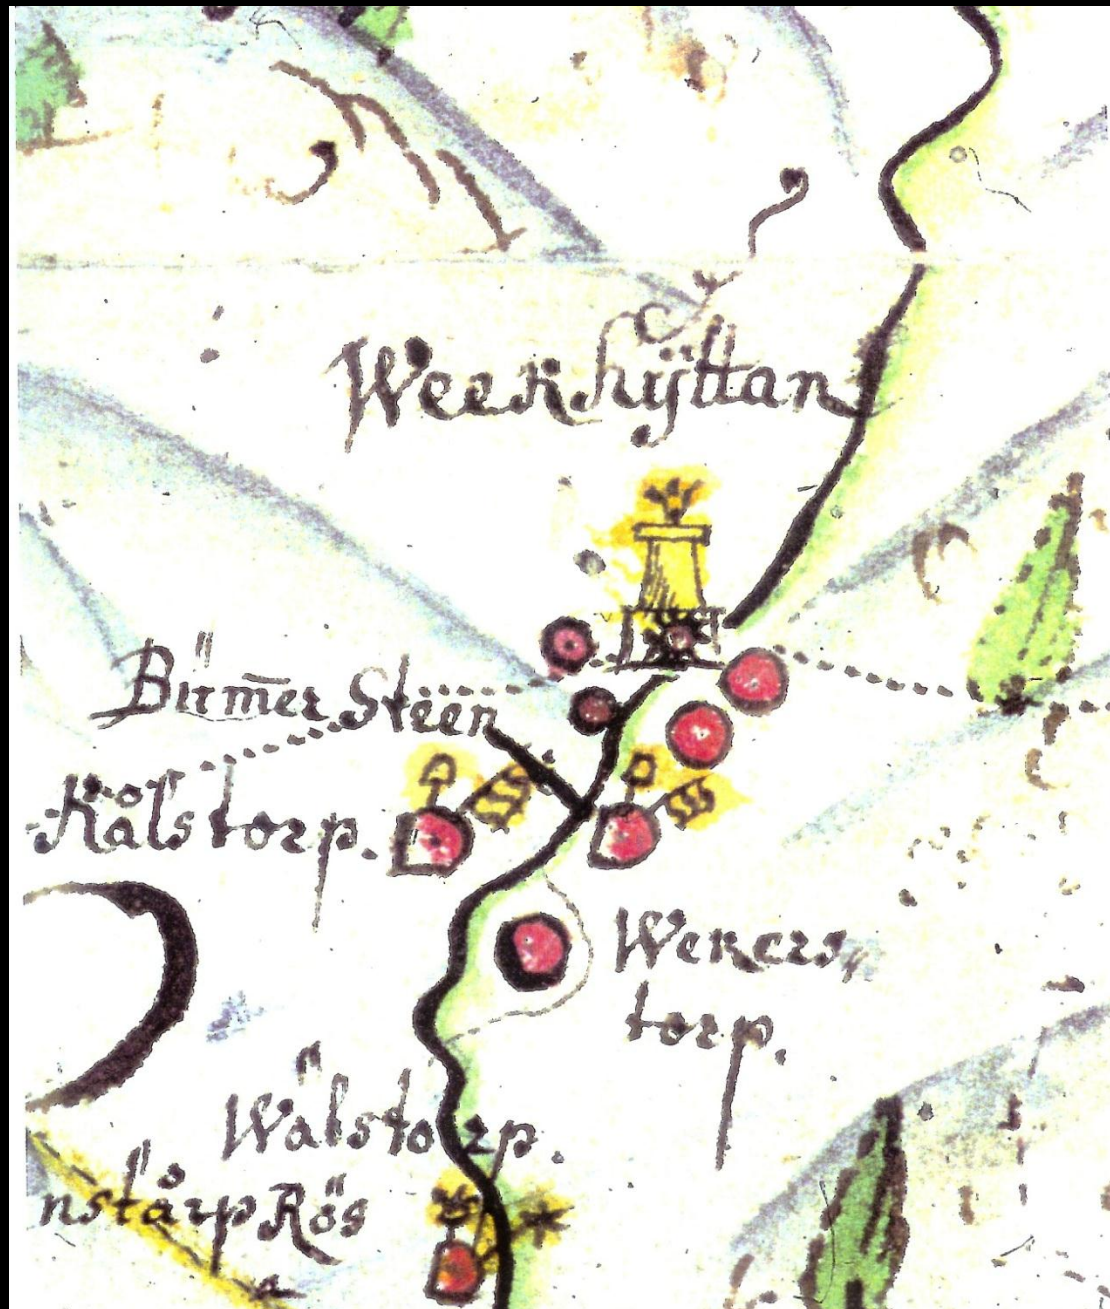 Weekhÿttan
Steen
Kålstorp.
Wekers
torp.
Wälstorp.
nstårp Rös